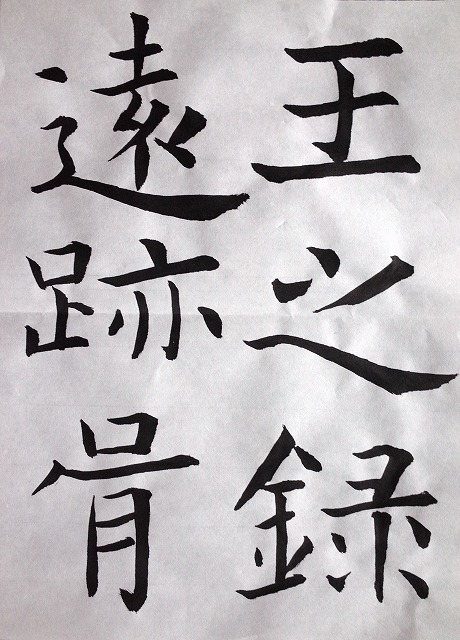 王之録
遠跡胥